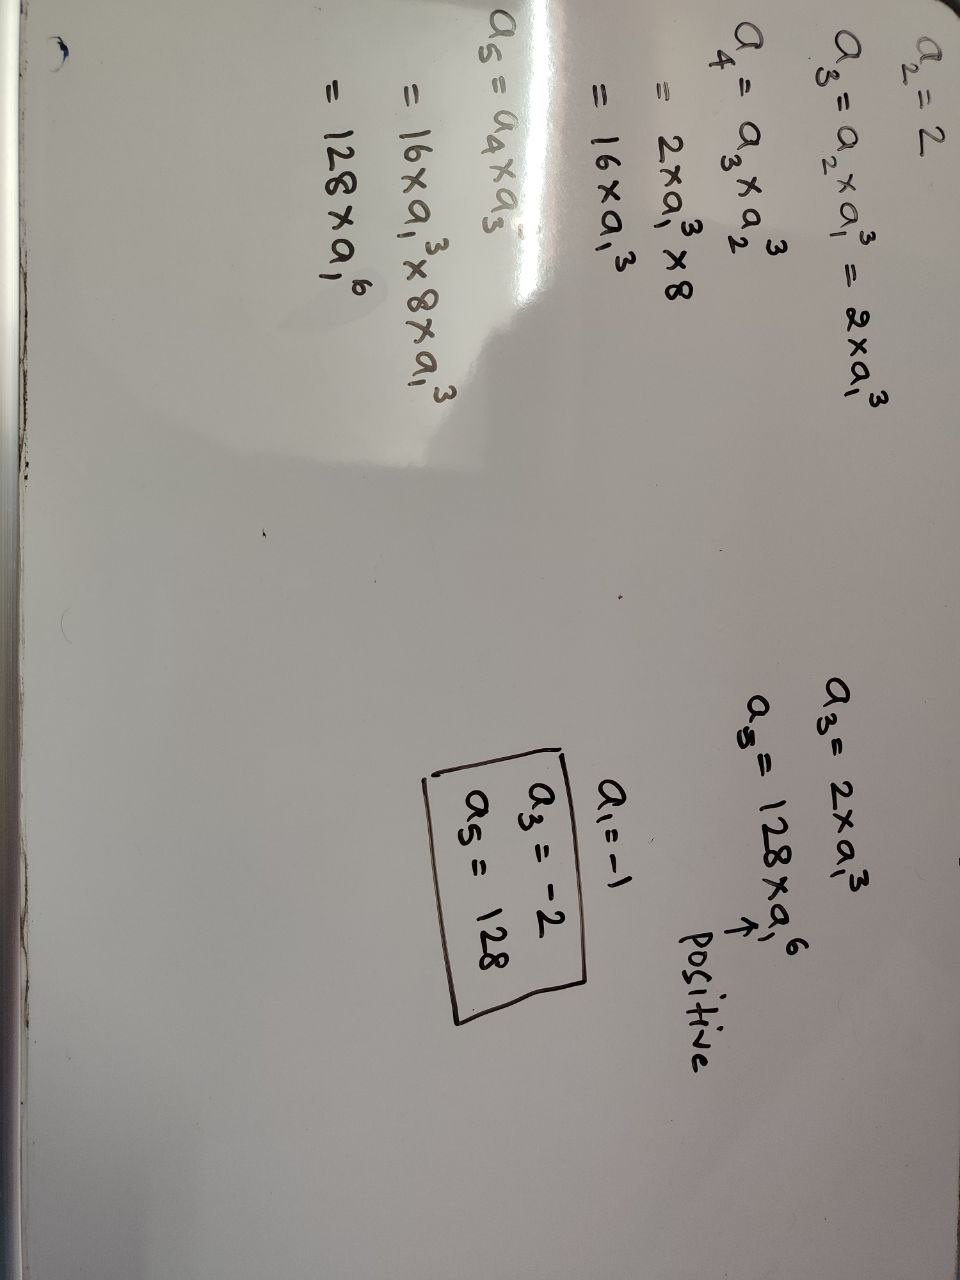 a₂ = 2
a₃ = a₂ × a₁³ = 2 × a₁³
a₄ = a₃ × a₂³
= 2 × a₁³ × 8
= 16 × a₁³
a₅ = a₄ × a₃
= 16 × a₁³ × 8 × a₁³
= 128 × a₁⁶
a₃ = 2 × a₁³
a₅ = 128 × a₁⁶
↑
positive
a₁ = -1
a₃ = -2
a₅ = 128